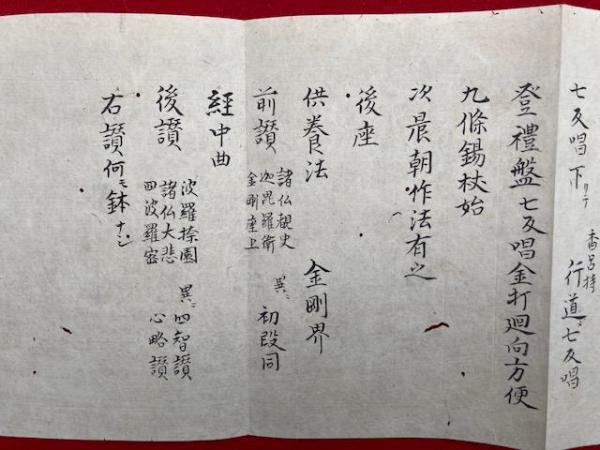 七反唱下リテ 香呂持 行道シ七反唱
登禮盤七反唱金打廻向方便
九條錫杖始
次晨朝作法有之
後座
供養法 金剛界
前讃 諸仏覩史 迦毘羅衛 金剛座上 異ニ 初段同
經中曲
後讃 波羅捺園 諸仏大悲 四波羅密 異ニ 四智讃 心略讃
右讃何モ鉢ナシ